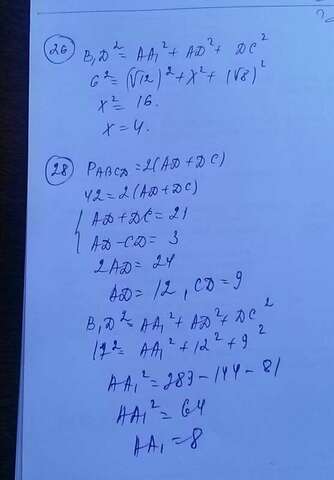 26
B₁D² = AA₁² + AD² + DC²
6² = (√12)² + x² + (√8)²
x² = 16.
x = 4.
28
P_ABCD = 2(AD + DC)
42 = 2(AD + DC)
{ AD + DC = 21
AD - CD = 3
2AD = 24
AD = 12, CD = 9
B₁D² = AA₁² + AD² + DC²
17² = AA₁² + 12² + 9²
AA₁² = 289 - 144 - 81
AA₁² = 64
AA₁ = 8